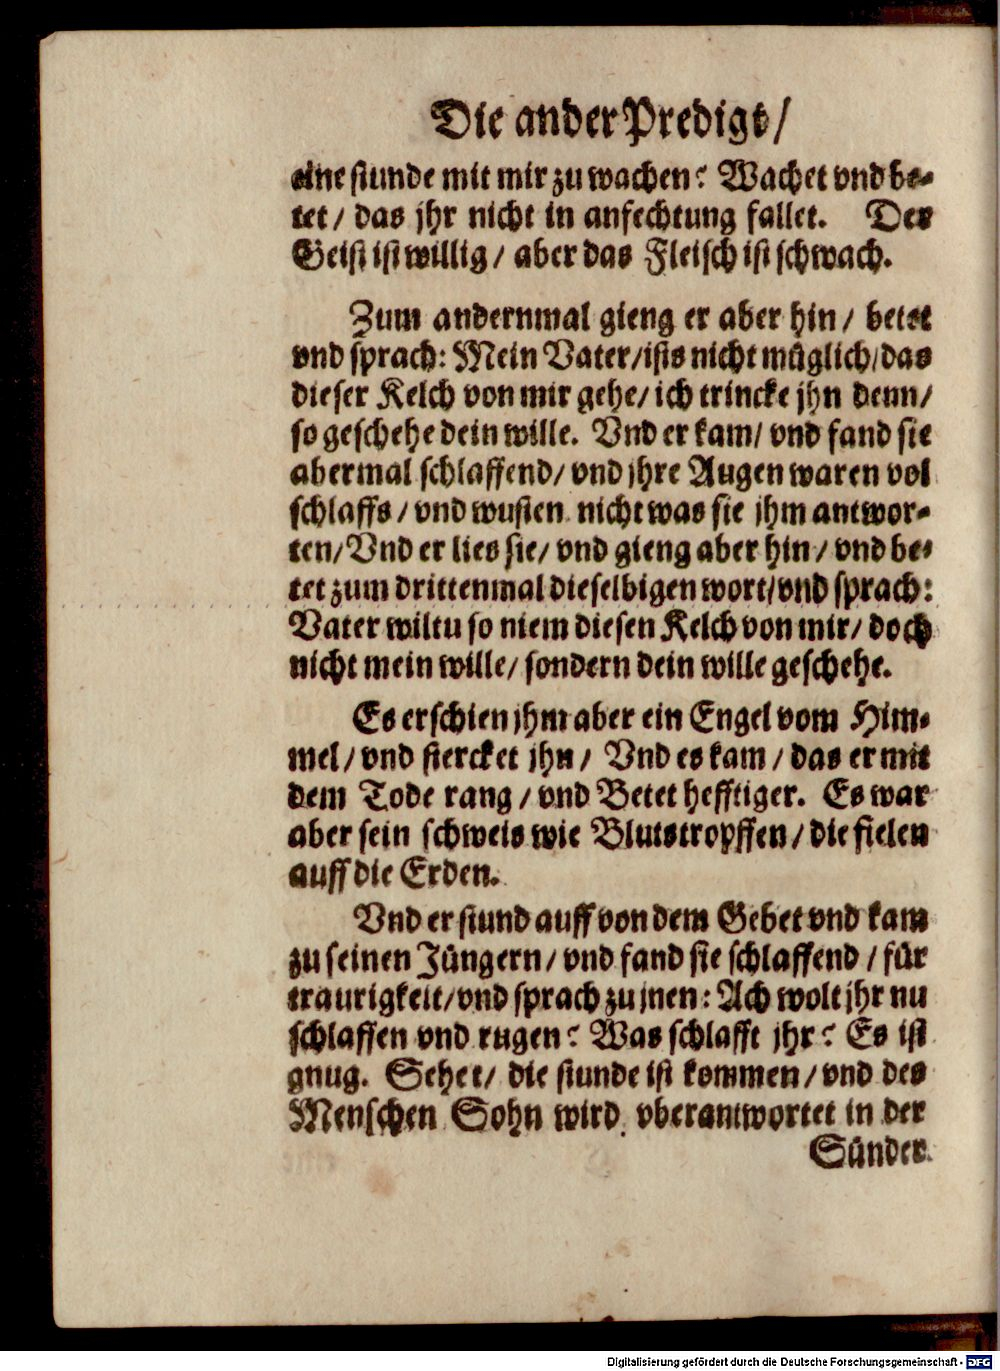 Die ander Predigt/
eine stunde mit mir zu wachen? Wachet vnd be-
tet/ das jhr nicht in anfechtung fallet. Der
Geist ist willig/ aber das Fleisch ist schwach.
Zum andernmal gieng er aber hin/ betet
vnd sprach: Mein Vater/ists nicht müglich/das
dieser Kelch von mir gehe/ ich trincke jhn denn/
so geschehe dein wille. Vnd er kam/ vnd fand sie
abermal schlaffend/ vnd jhre Augen waren vol
schlaffs/ vnd wusten nicht was sie jhm antwor-
ten/Vnd er lies sie/ vnd gieng aber hin/ vnd be-
tet zum drittenmal dieselbigen wort/vnd sprach:
Vater wiltu so niem diesen Kelch von mir/ doch
nicht mein wille/ sondern dein wille geschehe.
Es erschien jhm aber ein Engel vom Him-
mel/ vnd stercket jhn/ Vnd es kam/ das er mit
dem Tode rang/ vnd Betet hefftiger. Es war
aber sein schweis wie Blutstropffen/ die fielen
auff die Erden.
Vnd er stund auff von dem Gebet vnd kam
zu seinen Jüngern/ vnd fand sie schlaffend/ für
traurigkeit/vnd sprach zu jnen: Ach wolt jhr nu
schlaffen vnd rugen? Was schlafft jhr? Es ist
gnug. Sehet/ die stunde ist kommen/ vnd des
Menschen Sohn wird vberantwortet in der
Sünder
Digitalisierung gefördert durch die Deutsche Forschungsgemeinschaft - DFG